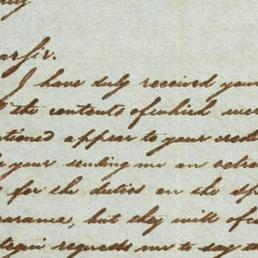 ear Sir.
I have duly received you
the contents of which wer
tioned appear to your cred
your sending me an
for the duties on the sp
earance, but they will of c
requests me to say th